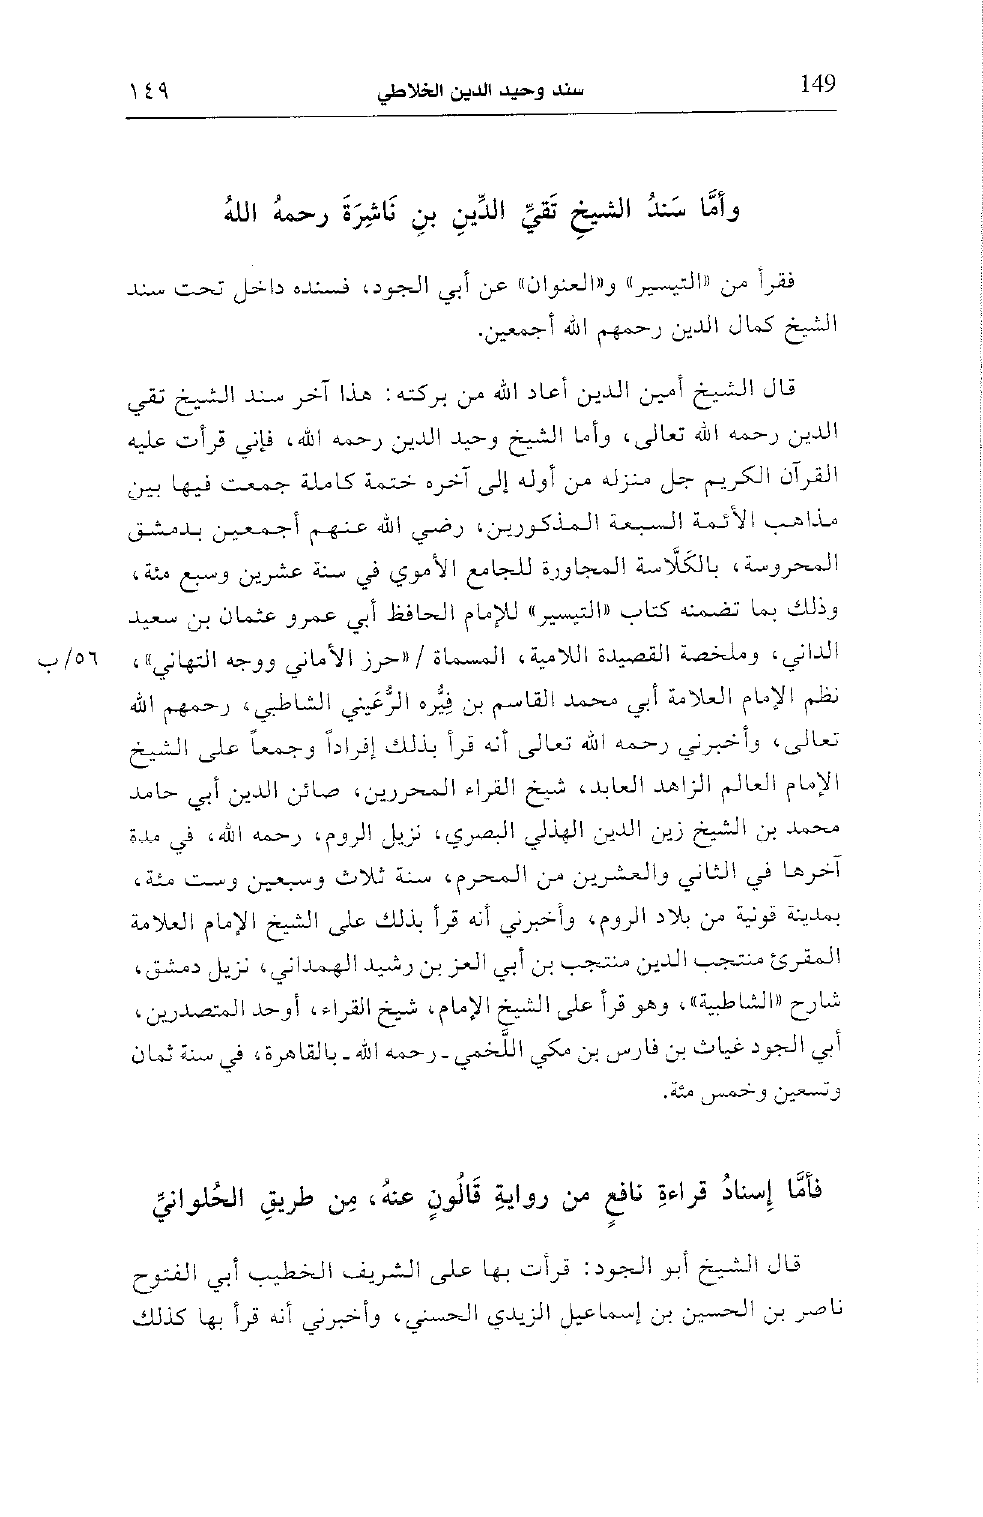 149 سند وحيد الدين الخلاطي ١٤٩
وأمَّا سَندُ الشيخِ تَقيِّ الدِّينِ بنِ نَاشِرَةَ رحمهُ اللهُ
فقرأ من «التيسير» و«العنوان» عن أبي الجود، فسنده داخل تحت سند
الشيخ كمال الدين رحمهم الله أجمعين.
قال الشيخ أمين الدين أعاد الله من بركته: هذا آخر سند الشيخ تقي
الدين رحمه الله تعالى، وأما الشيخ وحيد الدين رحمه الله، فإني قرأت عليه
القرآن الكريم جل منزله من أوله إلى آخره ختمة كاملة جمعت فيها بين
مذاهب الأئمة السبعة المذكورين، رضي الله عنهم أجمعين بدمشق
المحروسة، بالكَلَّاسة المجاورة للجامع الأموي في سنة عشرين وسبع مئة،
وذلك بما تضمنه كتاب «التيسير» للإمام الحافظ أبي عمرو عثمان بن سعيد
الداني، وملخصة القصيدة اللامية، المسماة / «حرز الأماني ووجه التهاني»، ٥٦/ب
نظم الإمام العلامة أبي محمد القاسم بن فِيُّره الرُّعَيني الشاطبي، رحمهم الله
تعالى، وأخبرني رحمه الله تعالى أنه قرأ بذلك إفراداً وجمعاً على الشيخ
الإمام العالم الزاهد العابد، شيخ القراء المحررين، صائن الدين أبي حامد
محمد بن الشيخ زين الدين الهذلي البصري، نزيل الروم، رحمه الله، في مدة
آخرها في الثاني والعشرين من المحرم، سنة ثلاث وسبعين وست مئة،
بمدينة قونية من بلاد الروم، وأخبرني أنه قرأ بذلك على الشيخ الإمام العلامة
المقرئ منتجب الدين منتجب بن أبي العز بن رشيد الهمداني، نزيل دمشق،
شارح «الشاطبية»، وهو قرأ على الشيخ الإمام، شيخ القراء، أوحد المتصدرين،
أبي الجود غياث بن فارس بن مكي اللَّخمي ـ رحمه الله ـ بالقاهرة، في سنة ثمان
وتسعين وخمس مئة.
فأمَّا إِسنادُ قراءةِ نافعٍ من روايةِ قَالُونٍ عنهُ، مِن طريقِ الحُلوانيِّ
قال الشيخ أبو الجود: قرأت بها على الشريف الخطيب أبي الفتوح
ناصر بن الحسين بن إسماعيل الزيدي الحسني، وأخبرني أنه قرأ بها كذلك